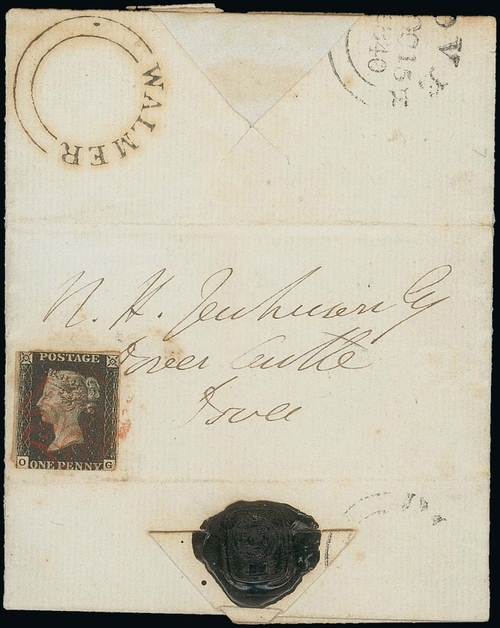 WALMER
OC 15
1840
N. H. Jenkinson Esq
Dover Castle
Dover
POSTAGE
O ONE PENNY G